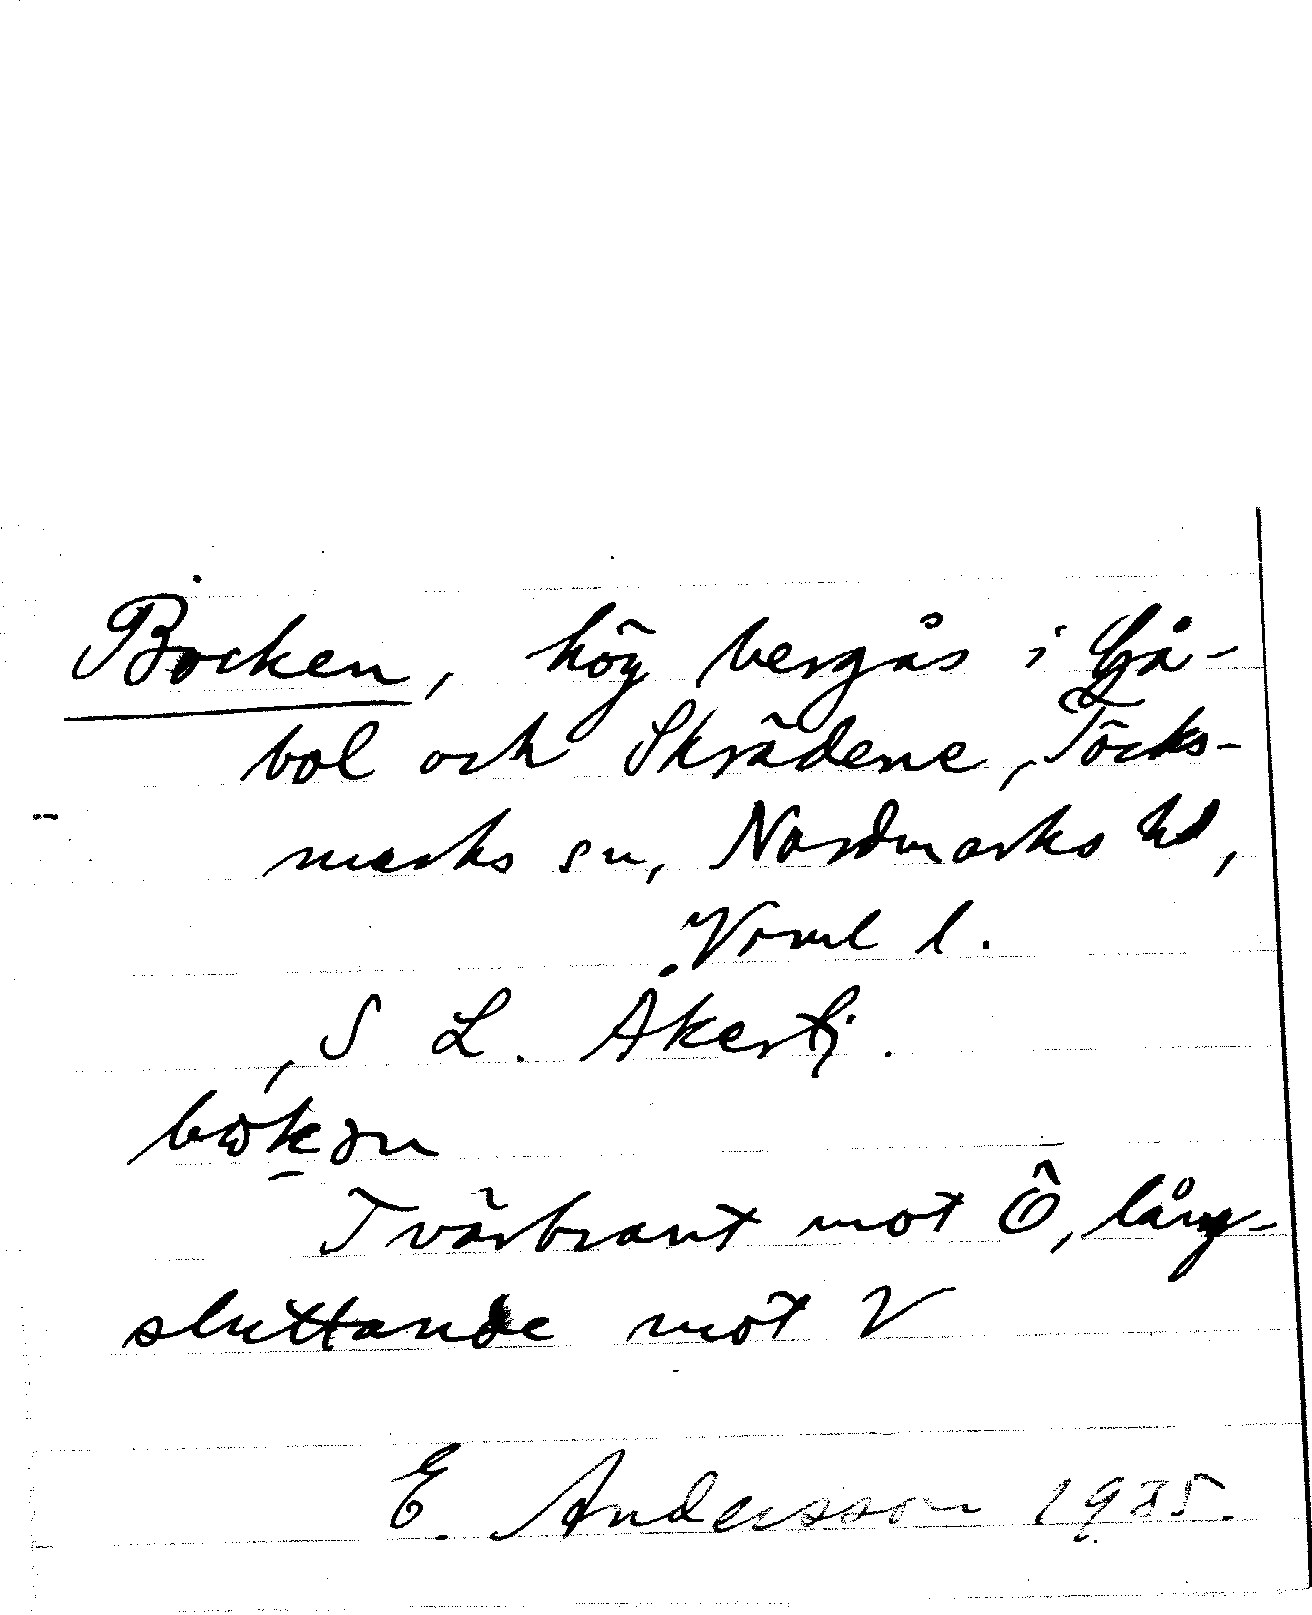 Bocken, hög bergås i Gå-
bol och Skrädene, Töcks-
marks sn, Nordmarks hd,
Vrml l.
S L. Åkertj.
Tvärbrant mot Ö, lång-
sluttande mot V
E. Andersson 1935.